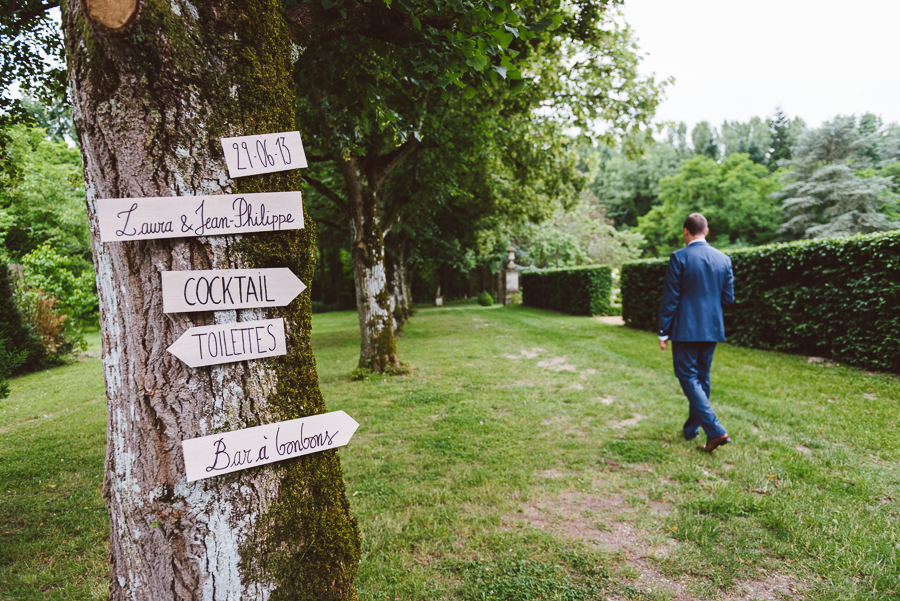 29.06.13
Laura & Jean-Philippe
COCKTAIL
TOILETTES
Bar à bonbons